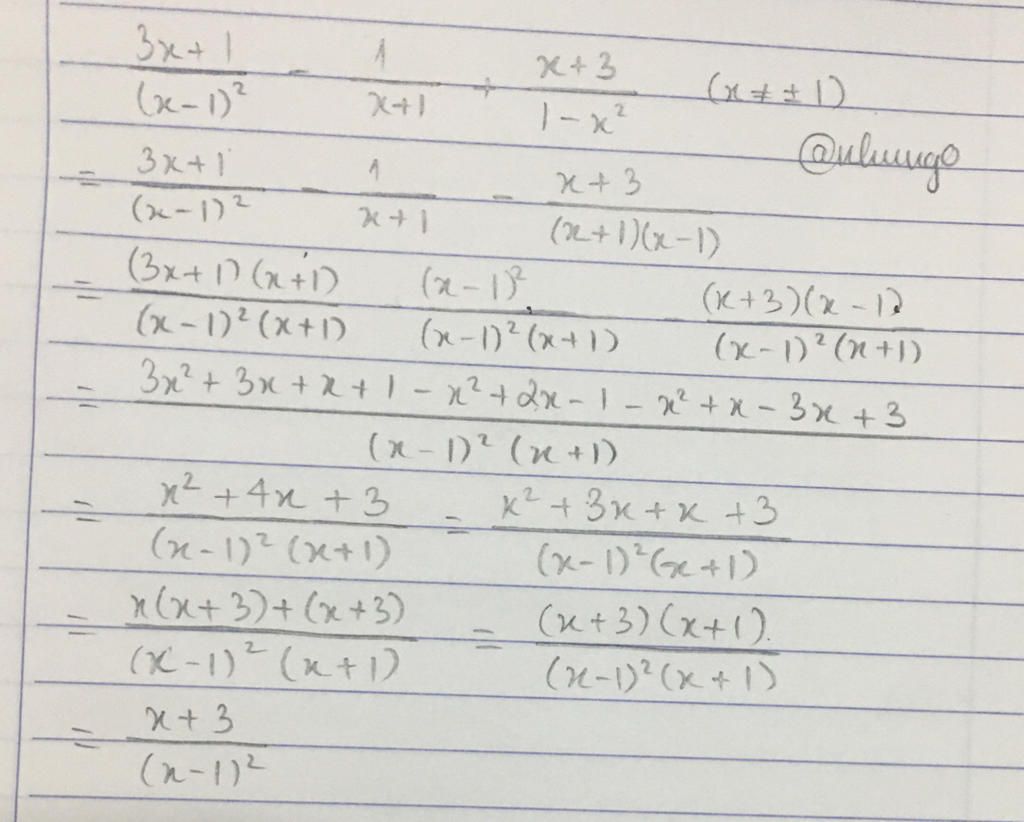 (3x+1)/(x-1)² - 1/(x+1) + (x+3)/(1-x²) (x ≠ ± 1)
@nhungo
= (3x+1)/(x-1)² - 1/(x+1) - (x+3)/((x+1)(x-1))
= ((3x+1)(x+1))/((x-1)²(x+1)) (x-1)²/((x-1)²(x+1)) - ((x+3)(x-1))/((x-1)²(x+1))
= (3x²+3x+x+1-x²+2x-1-x²+x-3x+3)/((x-1)²(x+1))
= (x²+4x+3)/((x-1)²(x+1)) = (x²+3x+x+3)/((x-1)²(x+1))
= (x(x+3)+(x+3))/((x-1)²(x+1)) = ((x+3)(x+1))/((x-1)²(x+1))
= (x+3)/(x-1)²